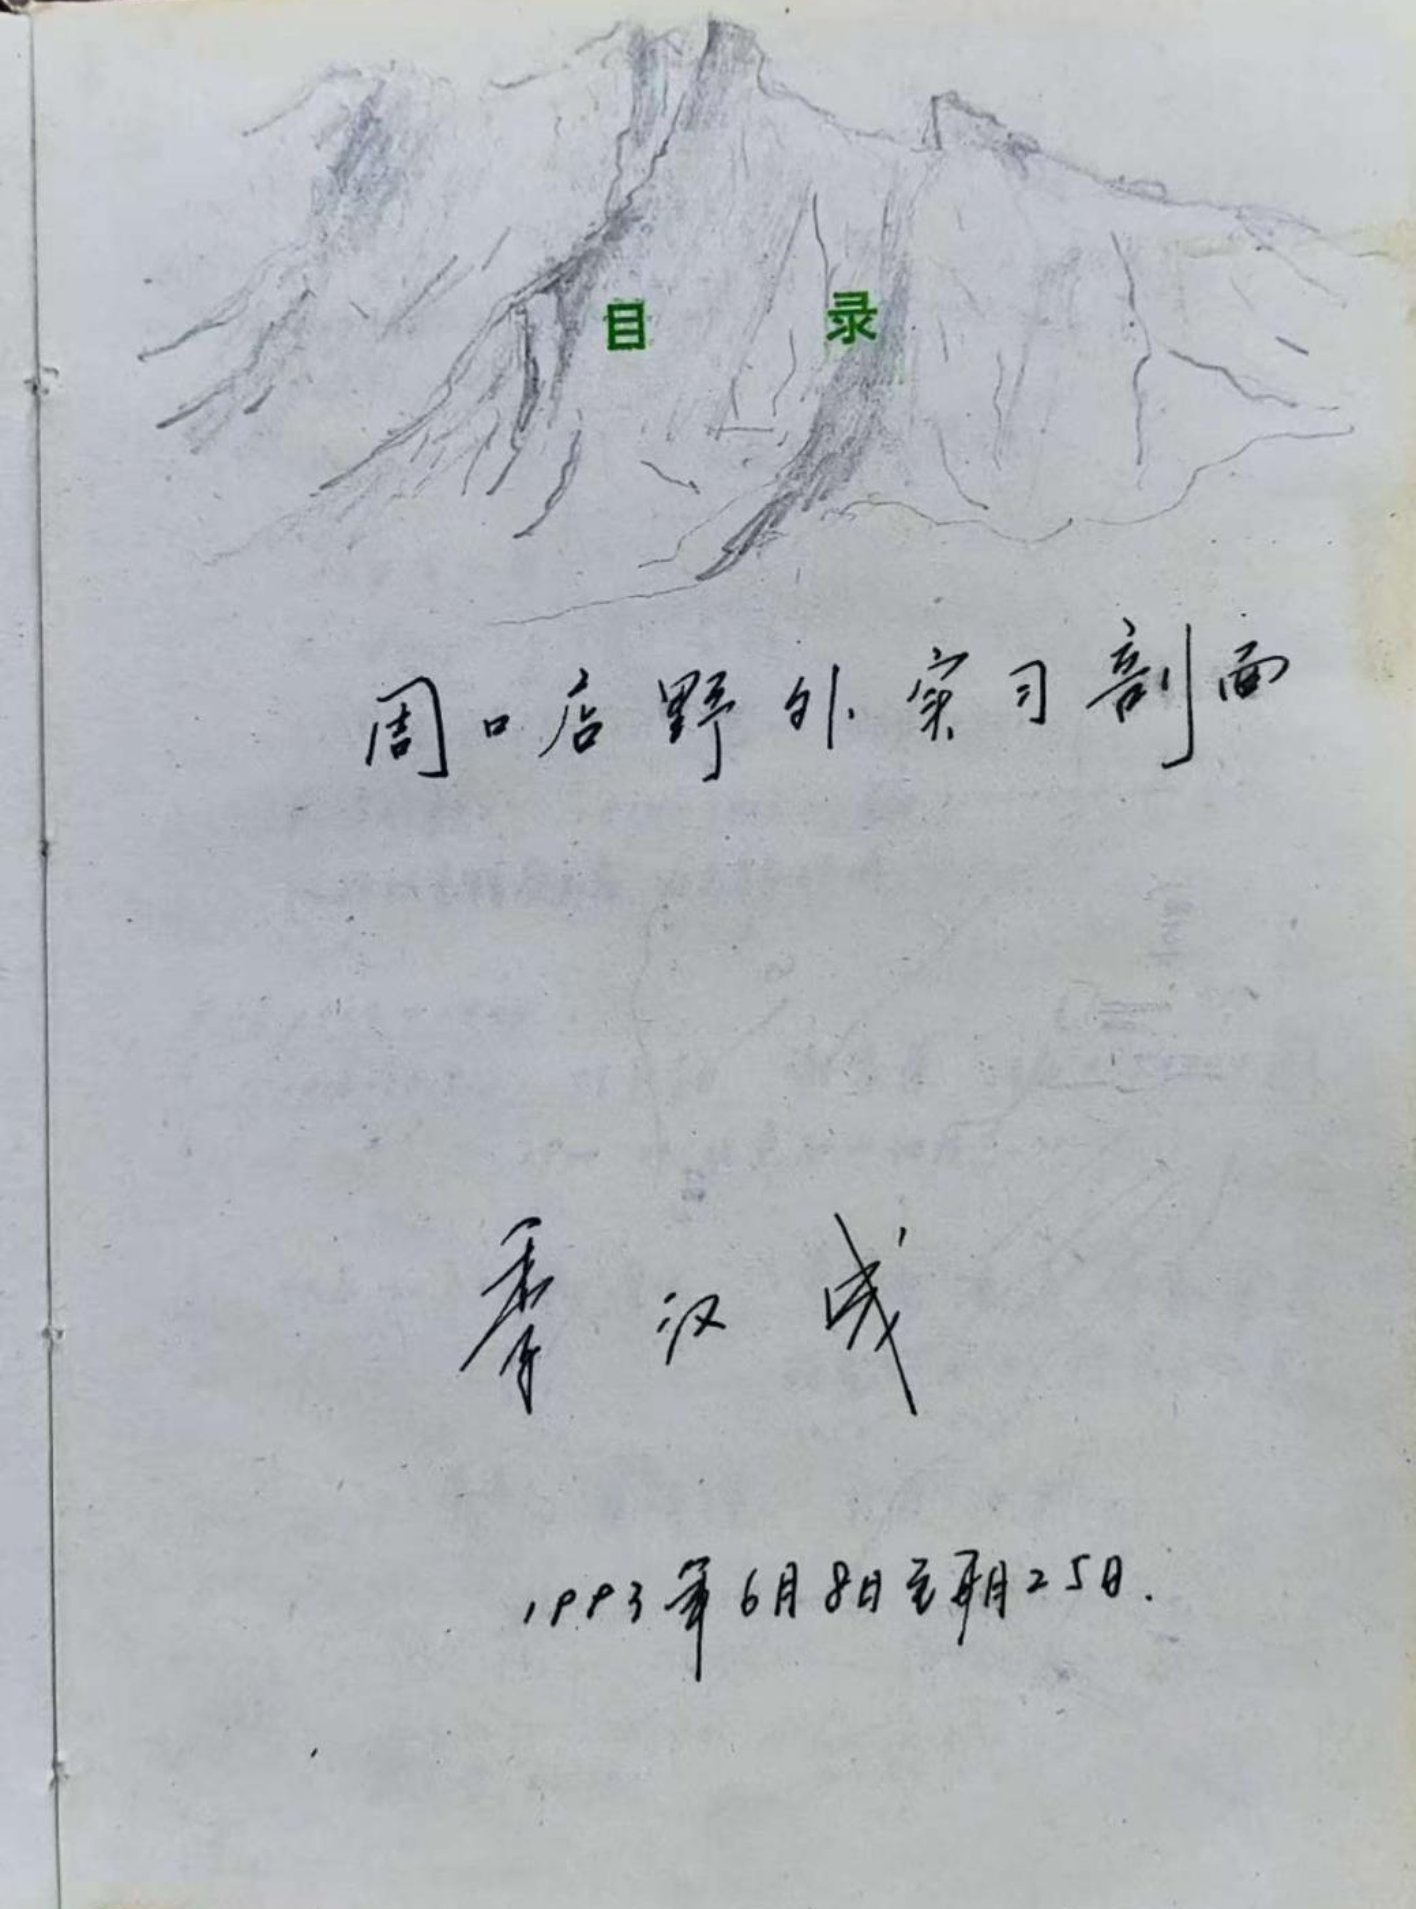 目 录
周口店野外实习剖面
季汉成
1993年6月8日至 月25日.